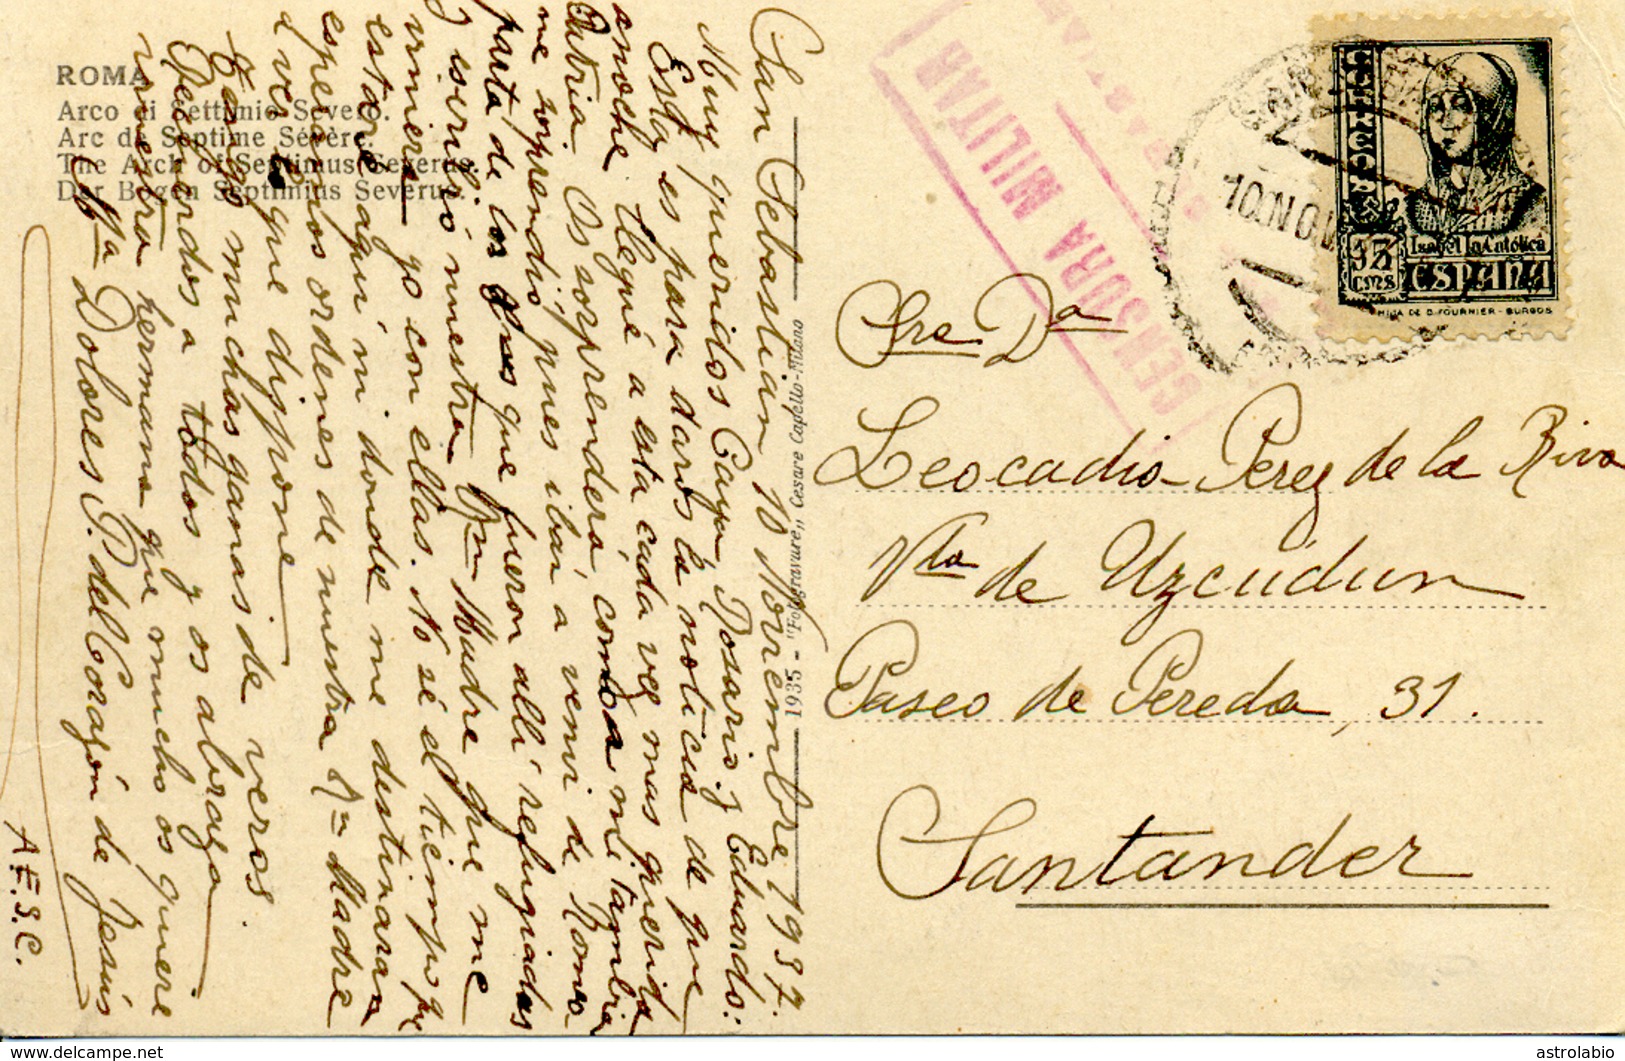 ROMA
Arco di Settimio Severo.
Arc de Septime Sévère.
The Arch of Septimus Severus.
Der Bogen Septimius Severus.
San Sebastián 10 Noviembre 1937.
Muy queridos Caya, Rosario y Eduardo:
Esta es para daros la noticia de que
anoche llegué a esta cada vez mas querida
Patria. Os sorprenderá como a mi tambien
me sorprendió, pues iban a venir de Roma
parte de los que que fueron allí refugiadas
y escribió nuestra Rn Madre que me
viniera yo con ellas. No sé el tiempo que
estaré aquí ni donde me destinaran
espero los ordenes de nuestra Rn Madre
a ver que dispone
Tengo muchas ganas de veros.
Recuerdos a todos y os abraza
vuestra hermana que mucho os quiere
Mª Dolores P. del Corazón de Jesús
A.E.S.C.
1935 - "Fotogravure" Cesare Capello-Milano
CENSURA MILITAR
10 NOV
Isabel la Católica
15
cms
ESPAÑA
CORREOS
HIJA DE B. FOURNIER - BURGOS
Sra Dª
Leocadia Perez de la Riva
Vda de Uzcúdun
Paseo de Pereda, 31.
Santander
astrolabio
www.delcampe.net